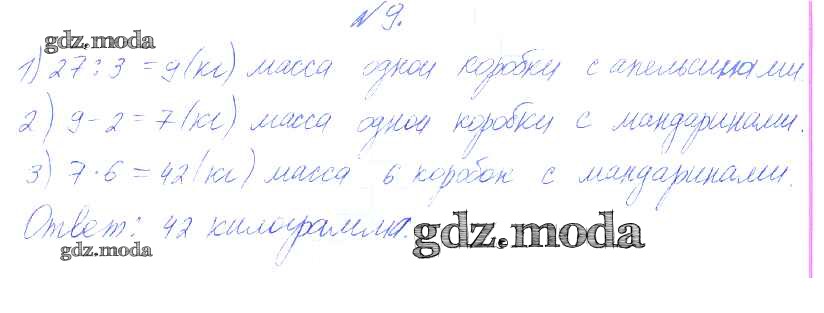 № 9.
gdz.moda
1) 27 : 3 = 9 (кг) масса одной коробки с апельсинами.
2) 9 - 2 = 7 (кг) масса одной коробки с мандаринами.
3) 7 · 6 = 42 (кг) масса 6 коробок с мандаринами.
Ответ: 42 килограмма.
gdz.moda
gdz.moda